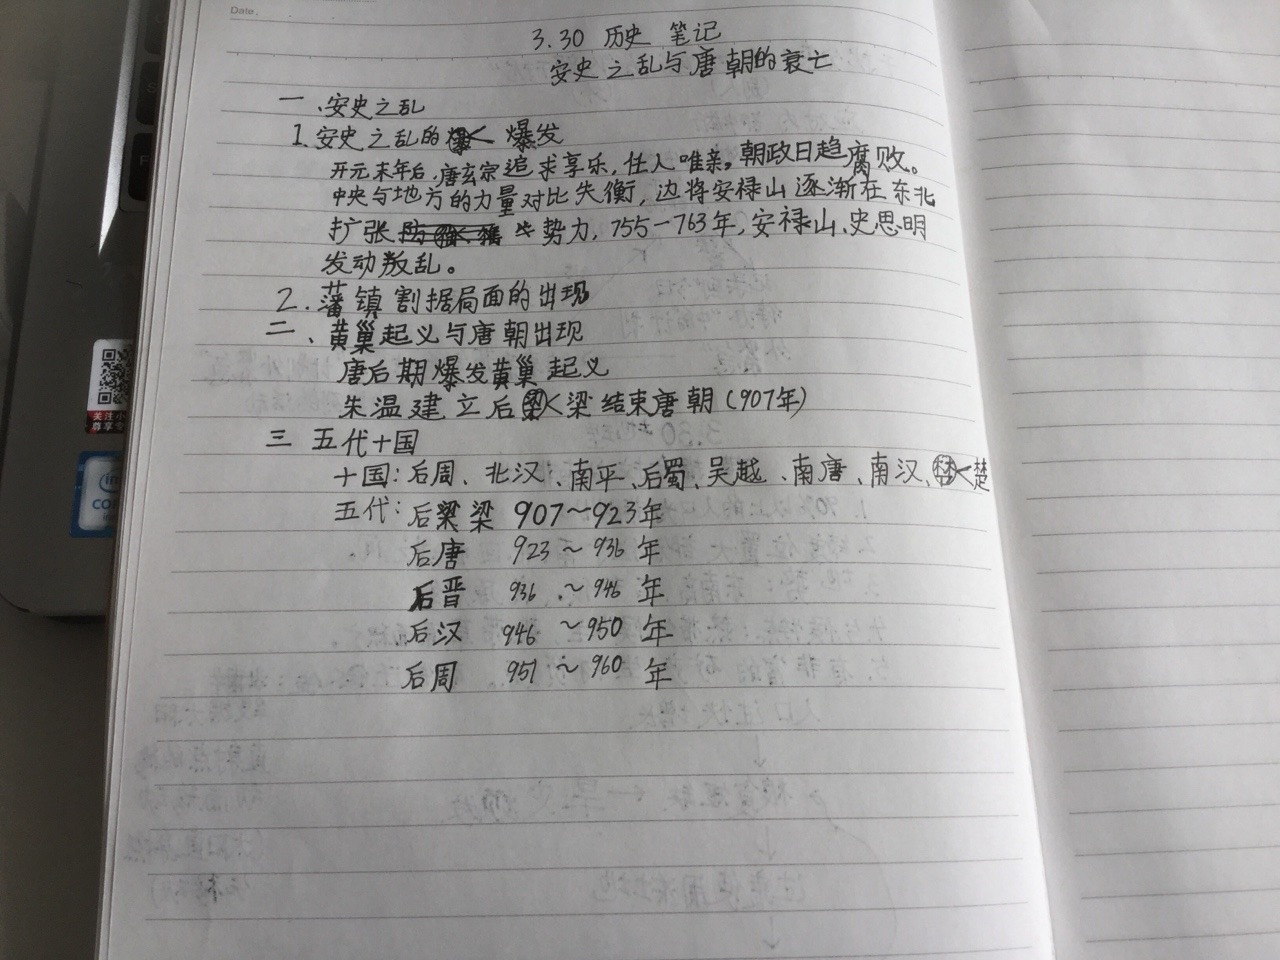 Date.
3.30 历史 笔记
安史之乱与唐朝的衰亡
一、安史之乱
1.安史之乱的 爆发
开元末年后,唐玄宗追求享乐,任人唯亲,朝政日趋腐败。
中央与地方的力量对比失衡,边将安禄山逐渐在东北
扩张 势力,755-763年,安禄山、史思明
发动叛乱。
2.藩镇割据局面的出现
二、黄巢起义与唐朝出现
唐后期爆发黄巢起义
朱温建立后梁结束唐朝(907年)
三 五代十国
十国:后周、北汉、南平、后蜀、吴越、南唐、南汉、楚
五代:后梁梁 907~923年
后唐 923~936年
后晋 936~946年
后汉 946~950年
后周 951~960年
关注小
尊享专